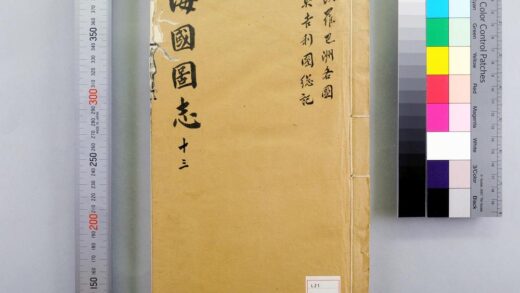 羅巴洲各國
英吉利國總記
海國圖志
十三
L21
350
300
250
200
150
Color Control Patches
Green
Yellow
Red
Magenta
White
3/Color
Black